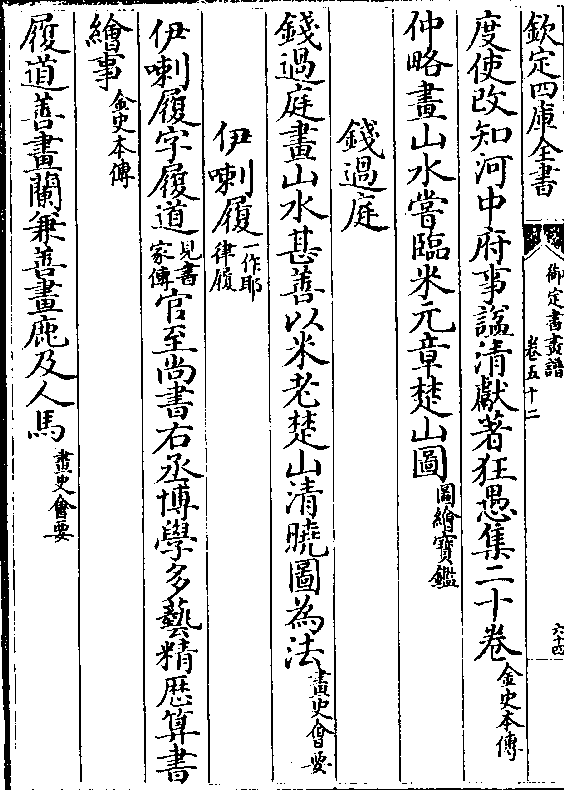 欽定四庫全書
御定書畫譜
卷五十二
六十四
度使改知河中府事諡清獻著狂愚集二十卷金史本傳
仲略畫山水嘗臨米元章楚山圖圖繪寶鑑
錢過庭
錢過庭畫山水甚善以米老楚山清曉圖為法畫史會要
伊喇履一作耶律履
伊喇履字履道見書家傳官至尚書右丞博學多藝精厯算書
繪事金史本傳
履道善畫蘭兼善畫鹿及人馬畫史會要